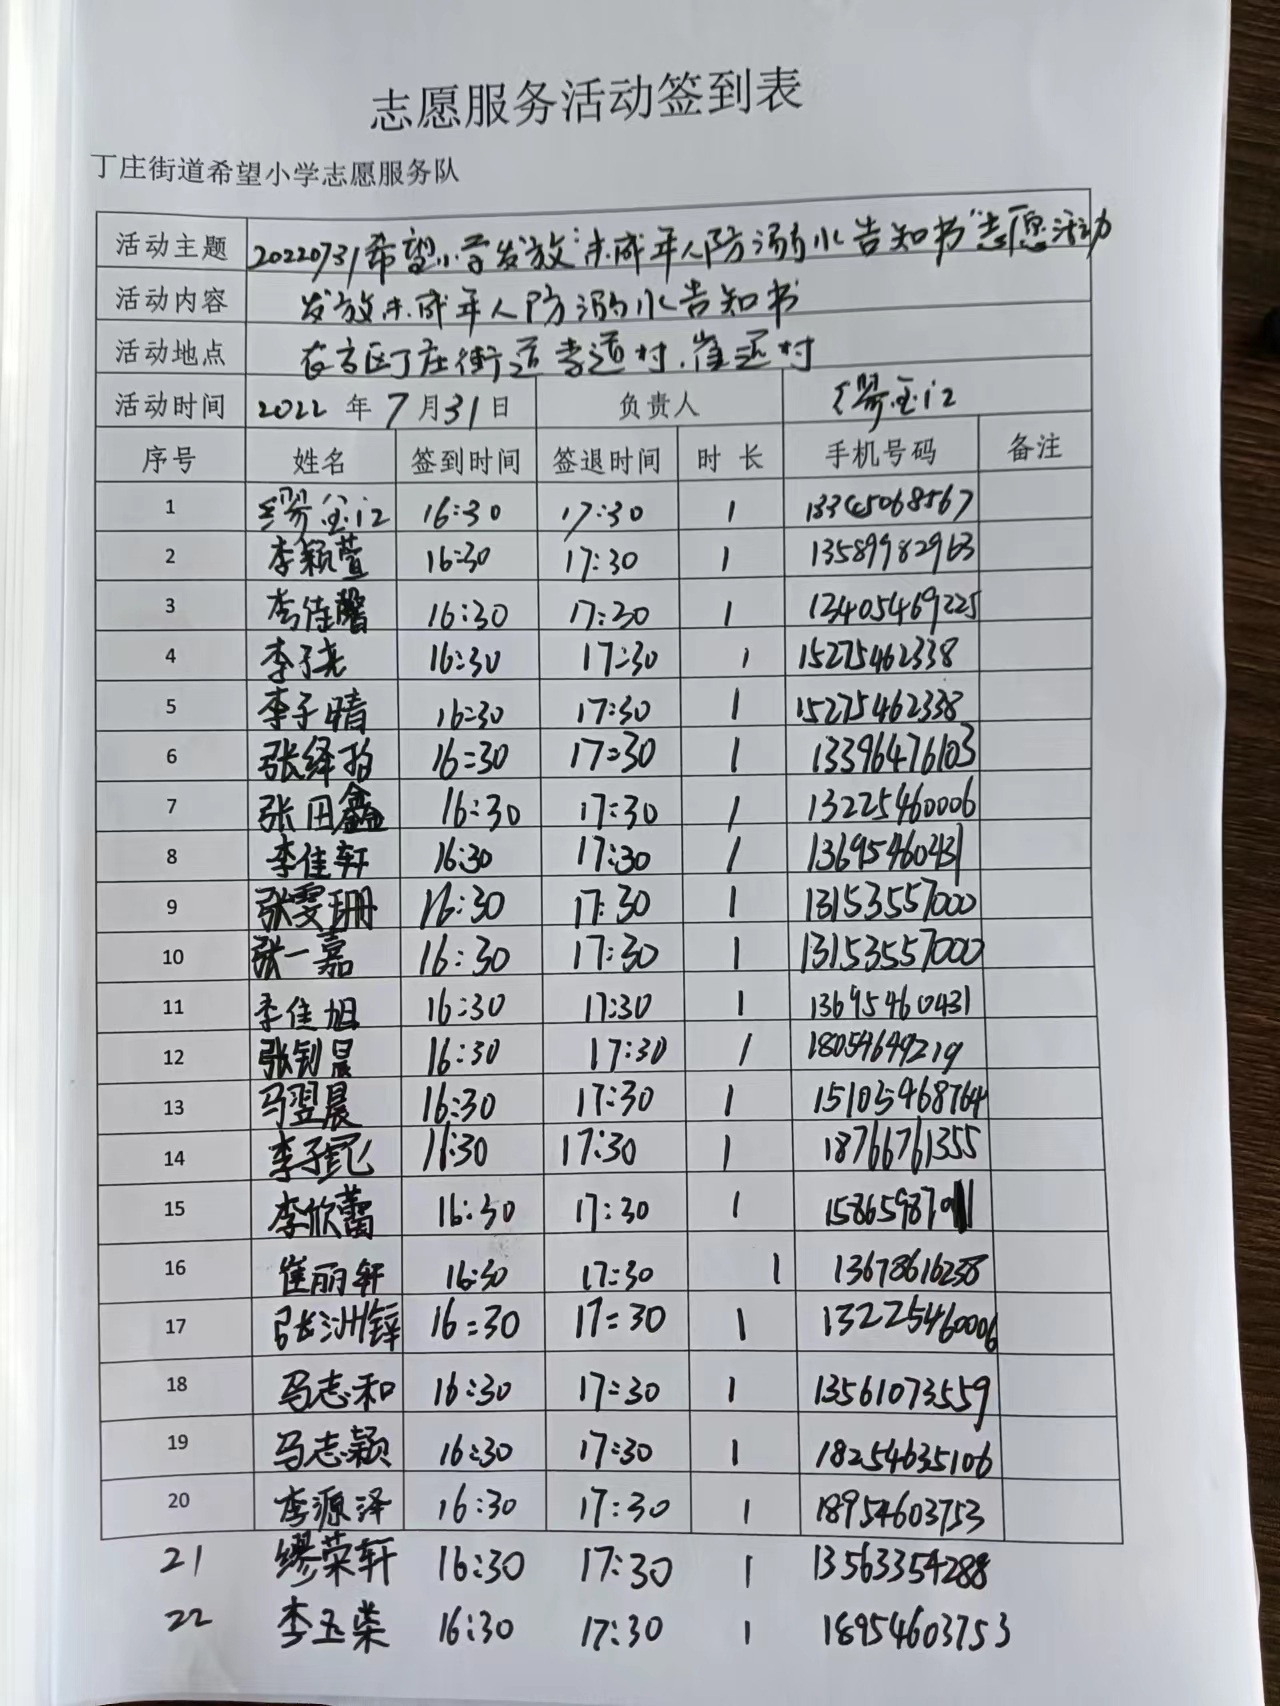 志愿服务活动签到表
丁庄街道希望小学志愿服务队
活动主题 20220731希望小学发放“未成年人防溺水告知书”志愿活动
活动内容 发放未成年人防溺水告知书
活动地点 农高区丁庄街道李道村、崔道村
活动时间 2022年7月31日 负责人 缪金江
序号 姓名 签到时间 签退时间 时长 手机号码 备注
1 缪金江 16:30 17:30 1 13345068567
2 李颖萱 16:30 17:30 1 13589982963
3 李佳馨 16:30 17:30 1 13405469225
4 李子尧 16:30 17:30 1 15275462338
5 李子晴 16:30 17:30 1 15275462338
6 张绎 16:30 17:30 1 13396476103
7 张田鑫 16:30 17:30 1 13225460006
8 李佳轩 16:30 17:30 1 13695460431
9 张雯珊 16:30 17:30 1 13153557000
10 张一嘉 16:30 17:30 1 13153557000
11 李佳旭 16:30 17:30 1 13695460431
12 张钊晨 16:30 17:30 1 18054649219
13 马翌晨 16:30 17:30 1 15105468764
14 李子 16:30 17:30 1 18766761355
15 李欣蕾 16:30 17:30 1
16 崔丽轩 16:30 17:30 1 13678616238
17 张洲锌 16:30 17:30 1 13225460006
18 马志和 16:30 17:30 1 13561073559
19 马志颖 16:30 17:30 1 18254635106
20 李源泽 16:30 17:30 1 18954603753
21 缪荣轩 16:30 17:30 1 13563354288
22 李玉荣 16:30 17:30 1 18954603753